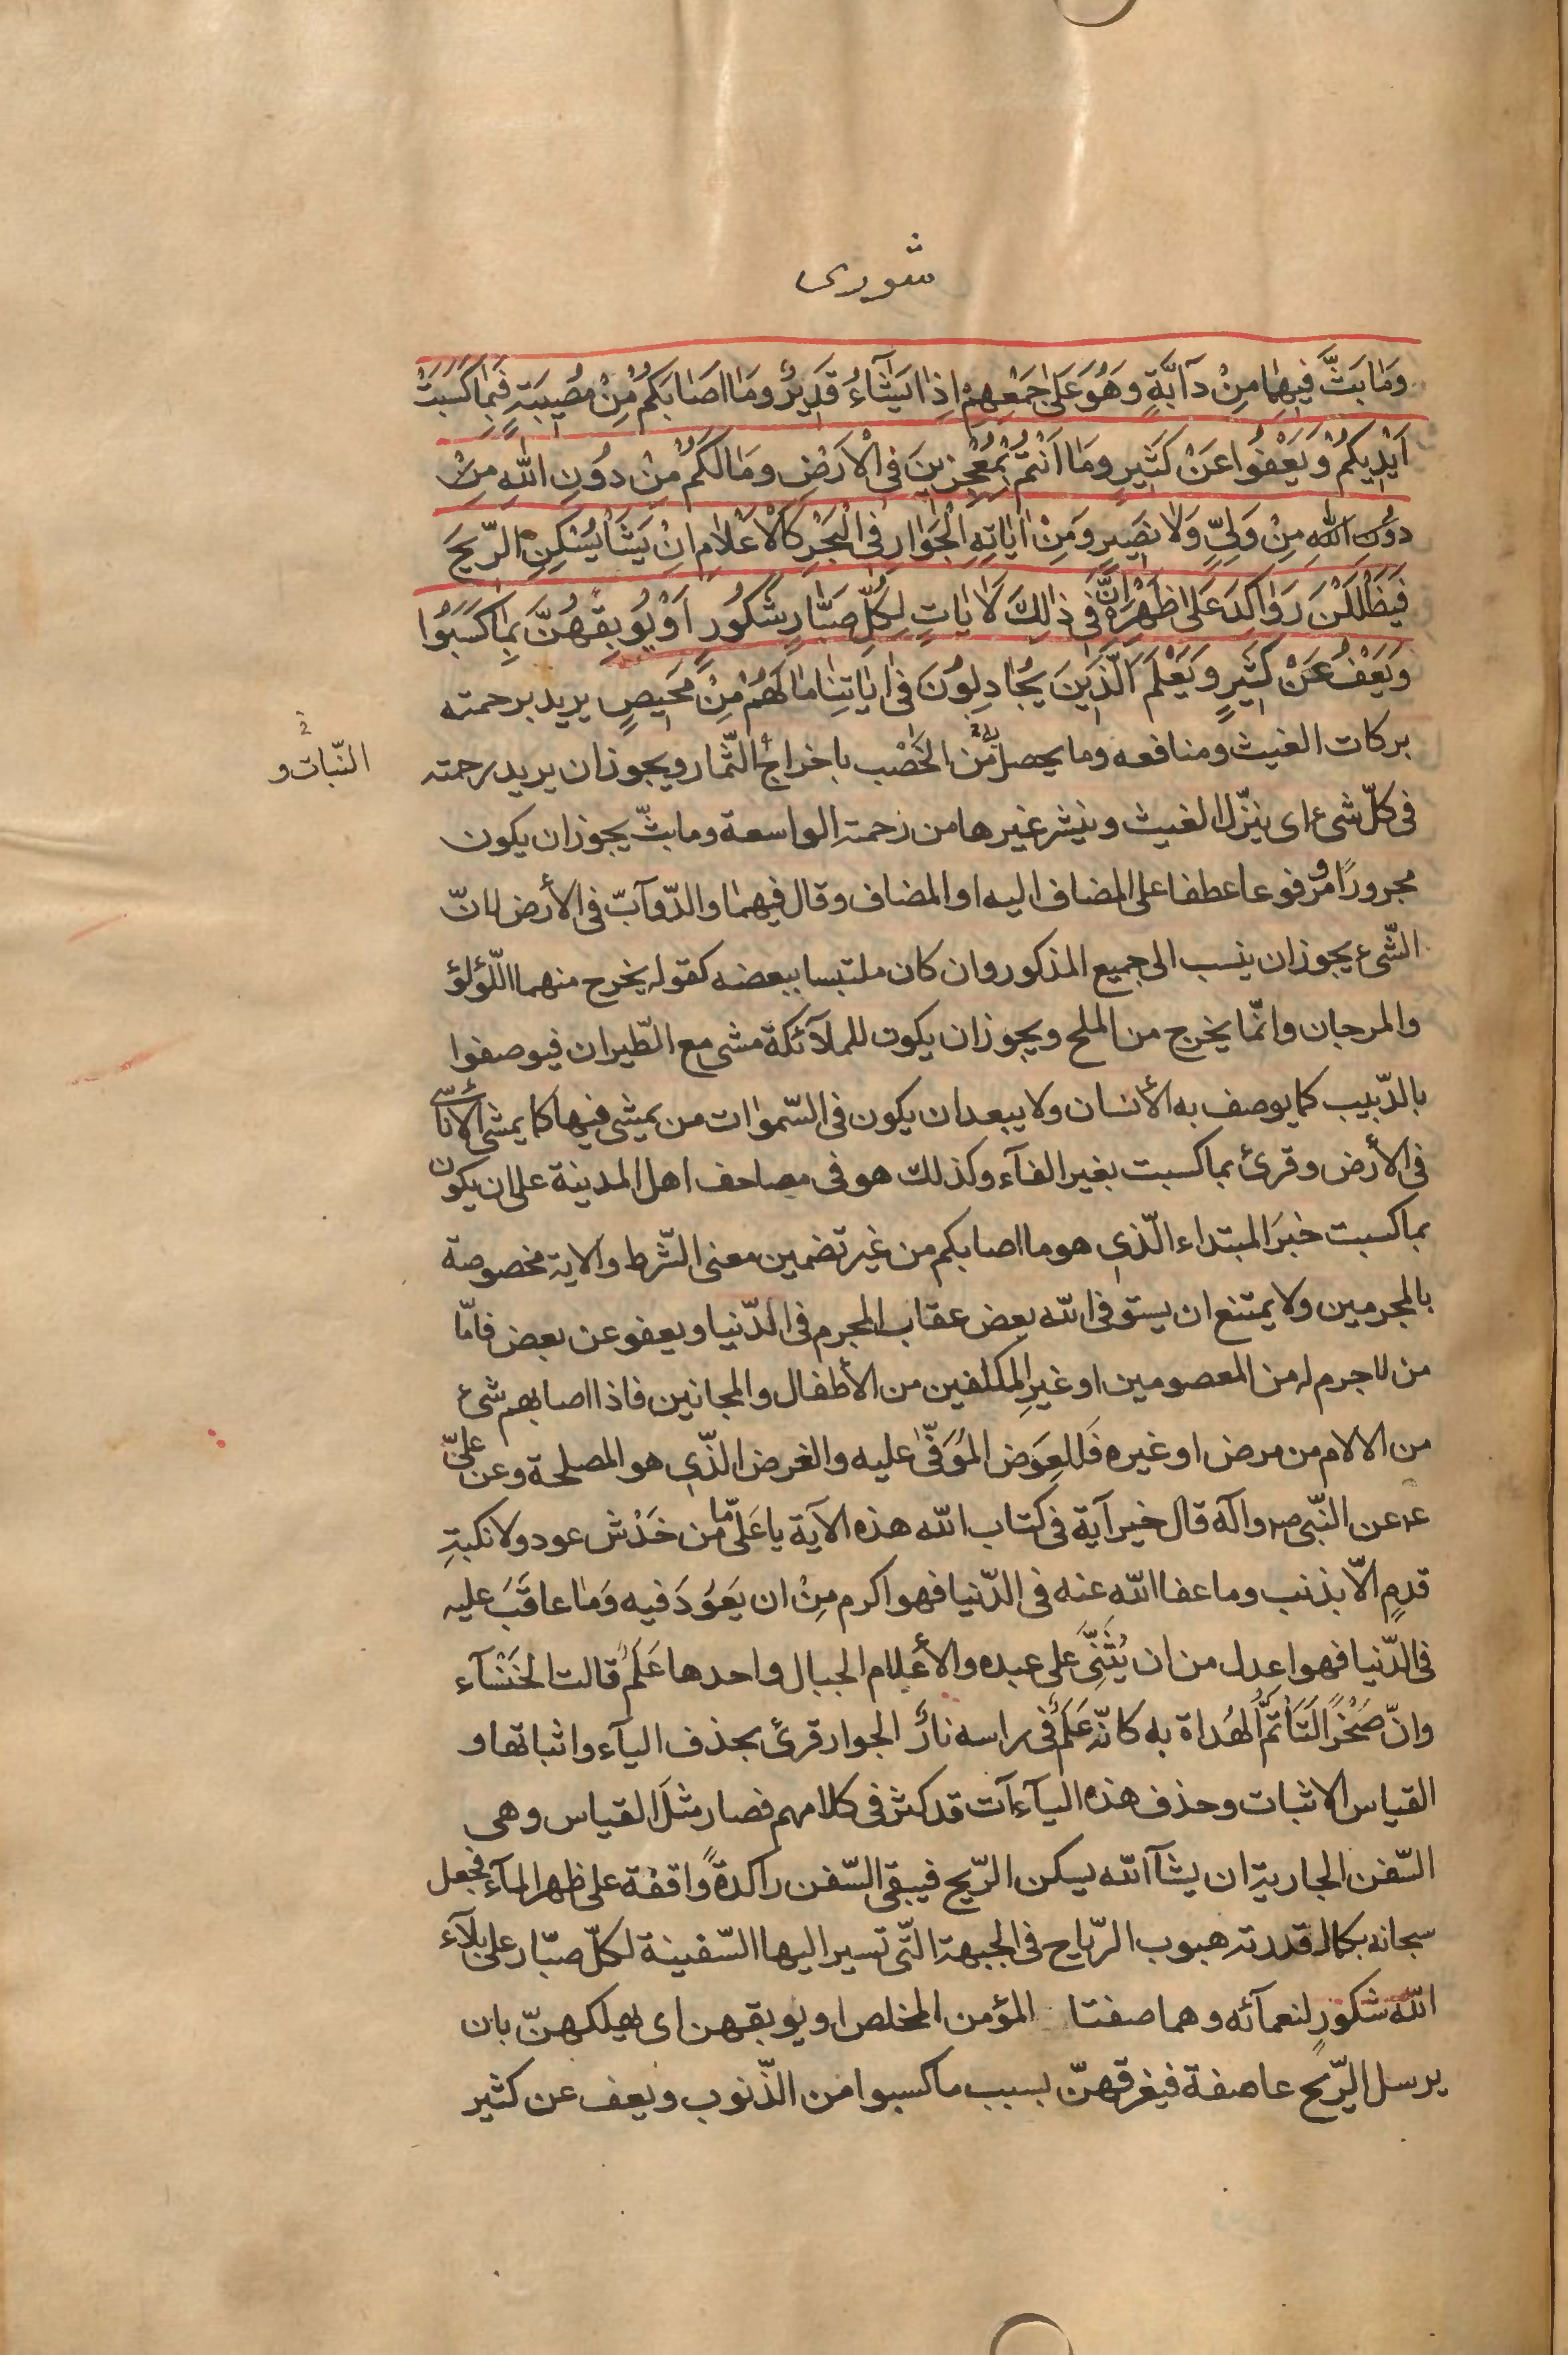 شورى
وَمَا بَثَّ فِيهِمَا مِنْ دآبَّةٍ وَهُوَ عَلَى جَمْعِهِمْ اِذَا يَشَآءُ قَدِيرٌ وَمَا اَصَابَكُمْ مِنْ مُصِيبَةٍ فَبِمَا كَسَبَتْ
اَيْدِيكُمْ وَيَعْفُوا عَنْ كَثِيرٍ وَمَا اَنْتُمْ بِمُعْجِزِينَ فِى الْاَرْضِ وَمَا لَكُمْ مِنْ دُونِ اللهِ مِنْ
دُونِ اللهِ مِنْ وَلِىٍّ وَلَا نَصِيرٍ وَمِنْ اٰيَاتِهِ الْجَوَارِ فِى الْبَحْرِ كَالْاَعْلَامِ اِنْ يَشَأْ يُسْكِنِ الرِّيحَ
فَيَظْلَلْنَ رَوَاكِدَ عَلَى ظَهْرِهِ اِنَّ فِى ذٰلِكَ لَاٰيَاتٍ لِكُلِّ صَبَّارٍ شَكُورٍ اَوْ يُوبِقْهُنَّ بِمَا كَسَبُوا
وَيَعْفُ عَنْ كَثِيرٍ وَيَعْلَمَ الَّذِينَ يُجَادِلُونَ فِى اٰيَاتِنَا مَا لَهُمْ مِنْ مَحِيصٍ يريد برحمته
بركات الغيث ومنافعه وما يحصل به من الخَصْب باخراج الثّمار ويجوز ان يريد رحمته
النّبات و
فى كلّ شىء اى ينزّل الغيث وينشر غيرها من رحمته الواسعة وما بثّ يجوز ان يكون
مجرورًا ومرفوعا عطفا على المضاف اليه او المضاف وقال فيهما والدّوآبّ فى الأرض لانّ
الشّىء يجوز ان ينسب الى جميع المذكور وان كان ملتبسا ببعضه كقوله يخرج منهما اللّؤلؤ
والمرجان وانّما يخرج من الملح ويجوز ان يكون للملآئكة مشى مع الطّيران فيوصفوا
بالدّبيب كما يوصف به الأنسان ولا يبعد ان يكون فى السّموات من يمشى فيها كما يمشى الاناسى
فى الأرض وقرئ بما كسبت بغير الفآء وكذلك هو فى مصاحف اهل المدينة على ان يكون
بما كسبت خبَر المبتداء الّذى هو ما اصابكم من غير تضمين معنى الشّرط والاية مخصوصة
بالمجرمين ولا يمتنع ان يستوفى الله بعض عقاب المجرم فى الدّنيا ويعفو عن بعض فامّا
من لا جرم له من المعصومين او غيرِ المكلفين من الأطفال والمجانين فاذا اصابهم شىء
من الالام من مرض او غيره فَللعِوَض المُوَفّى عليه والغرض الّذى هو المصلحة وعن علىّ
عه عن النّبى صه وآله قال خير آية فى كتاب الله هذه الآية يا عَلىّ ما من خَدْش عود ولا نكبةِ
قدمٍ الّا بذنب وما عفا الله عنه فى الدّنيا فهو اكرم مِنْ ان يَعُوَدَ فيه وَمَا عاقَبَ عليه
فى الدّنيا فهو اعدل من ان يُثَنِّىَ على عبده والأعلام الجبال واحدها عَلَمٌ قالت الخَنْسَآء
وانّ صَخْرًا لَتَاْتَمُّ الهُداة به كانّه عَلَمٌ فى راسه نارٌ الجوار قرئ بحذف اليآء واثباتها و
القياس الاثبات وحذف هذه اليآءآت قد كثر فى كلامهم فصار مثلَ القياس وهى
السّفن الجارية ان يشآ الله يسكن الرّيح فيبقى السّفن راكدةً واقفة على ظهر المآء فجعل
سبحانه بكمال قدرته هبوب الرّياح فى الجهة الّتى تسير اليها السّفينة لكلّ صبّار على بلآء
الله شكورٍ لنعمآئه وهما صفتا المؤمن المخلص او يوبقهن اى يهلكهنّ بان
يرسل الرّيح عاصفة فيغرقهنّ بسبب ما كسبوا من الذّنوب ويعف عن كثير